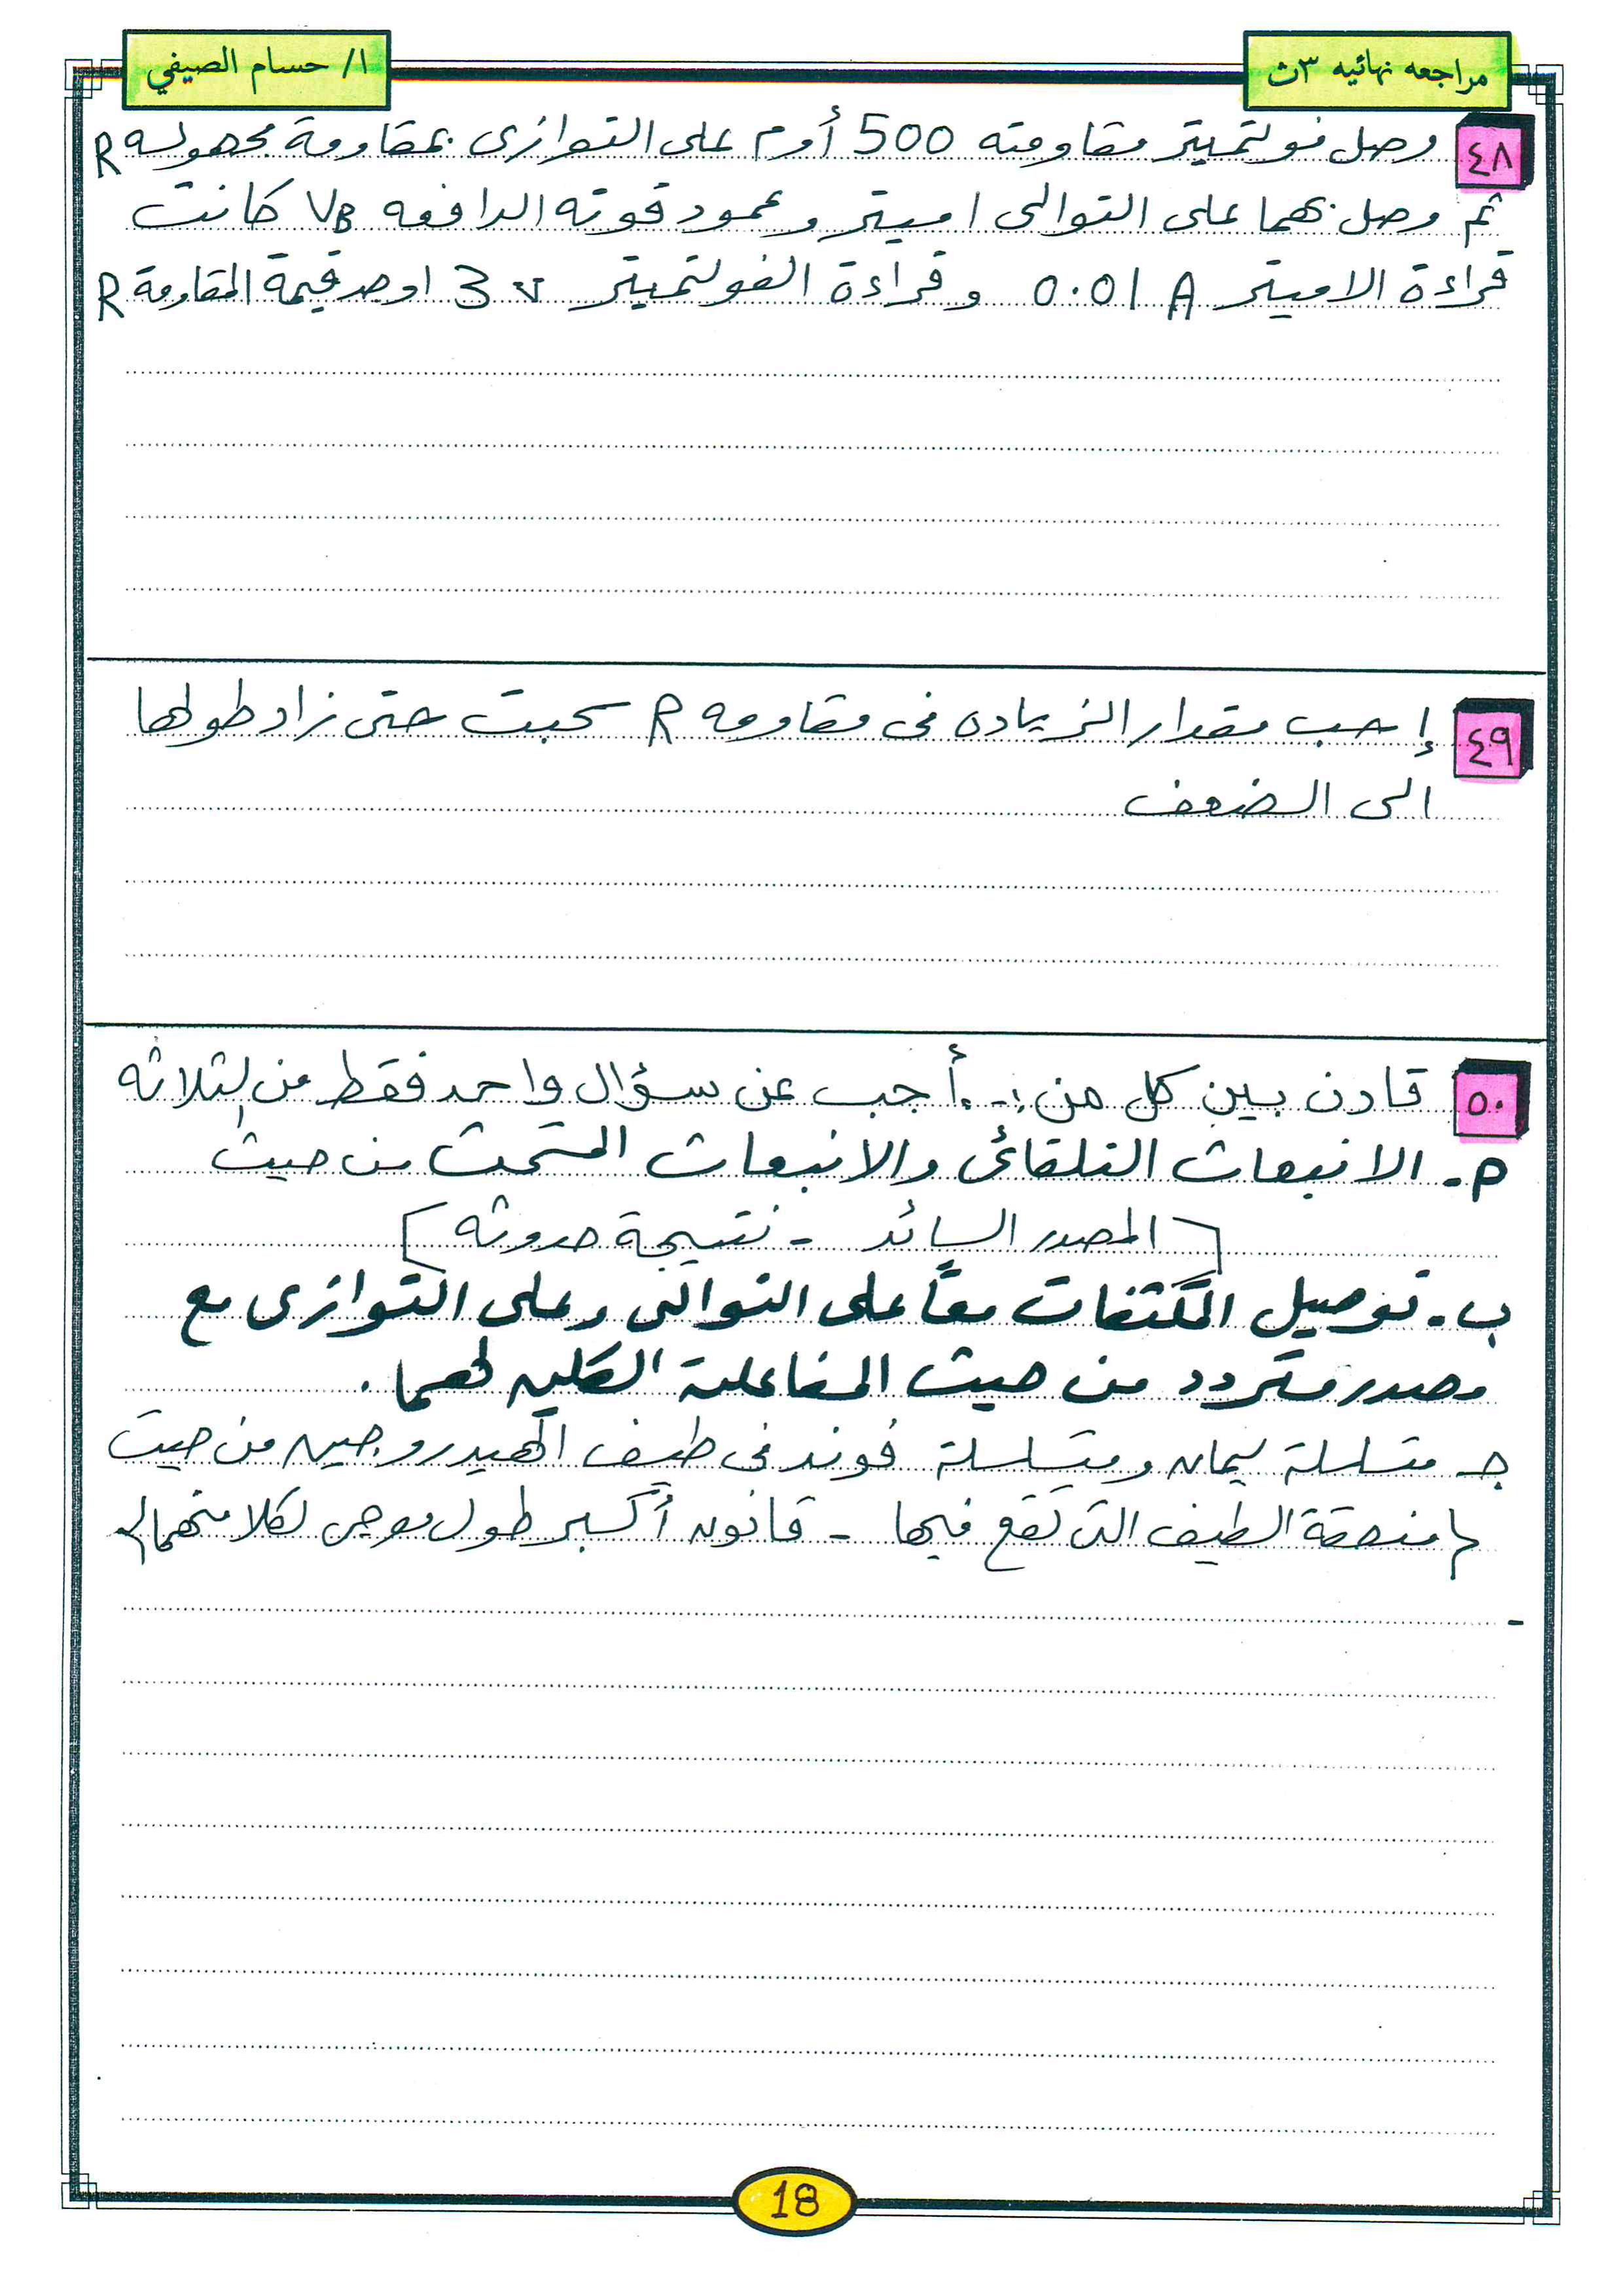 مراجعه نهائيه ٣ث
ا/ حسام الصيفي
٤٨ وصل فولتميتر مقاومته 500 أوم على التوازى بمقاومة مجهوله R
ثم وصل بهما على التوالى اميتر وعمود قوته الدافعه VB كانت
قراءة الاميتر 0.01 A وقراءة الفولتميتر 3 v اوجد قيمة المقاومة R
٤٩ إحسب مقدار الزياده فى مقاومه R سحبت حتى زاد طولها
الى الضعف
٥٠ قارن بين كل من :- أجب عن سؤال واحد فقط من الثلاثه
P- الانبعاث التلقائى والانبعاث المستحث من حيث
[ المصدر السائد - نتيجة حدوثه ]
ب- توصيل المكثفات معاً على التوالى وعلى التوازى مع
مصدر متردد من حيث المفاعلية الكليه لهما .
جـ متسلسلة ليمان ومتسلسلة فوند فى طيف الهيدروجين من حيث
{ منطقة الطيف التى تقع فيها - قانون أكبر طول موجى لكلا منهما }
-
18